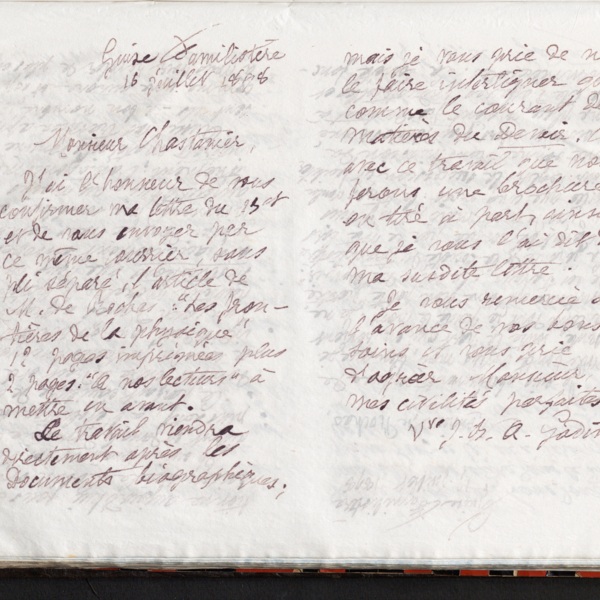 Guise Familistère
16 juillet 1898
Monsieur Chastanier,
J'ai l'honneur de vous
confirmer ma lettre du 15 ct
et de vous envoyer par
ce même courrier, sous
pli séparé, l'article de
M. de Rochas: "Les fron-
tières de la physique"
12 pages imprimées plus
2 pages: "A nos lecteurs" à
mettre en avant.
Ce travail viendra
directement après les
Documents biographiques;
mais je vous prie de n
le faire interligner
comme le courant de
matières du Devoir.
avec ce travail que nou
ferons une brochure
ou tiré à part, ains
que je vous l'ai dit d
ma susdite lettre.
Je vous remercie
d'avance de vos bons
soins et vous prie
d'agréer Monsieur
mes civilités parfaites
Vve J. B. A. Godin